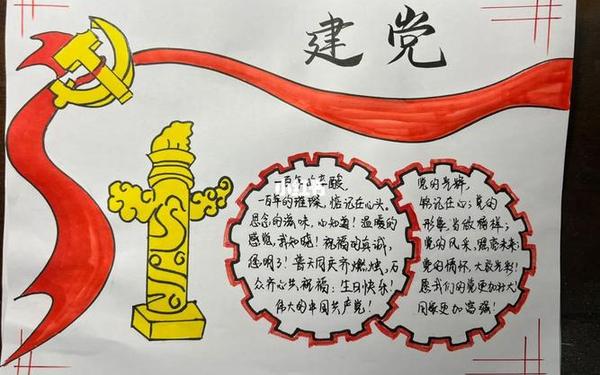 建党
一百年的辛酸,
一百年的璀璨,惦记在心头。
思念的滋味,心知道!温暖的
感觉,我知晓!祝福的真诚,
您明了!普天同庆齐燃烛,万
众齐心共祝福:生日快乐!
伟大的中国共产党!
党的光辉,
铭记在心;党的
形象,当做榜样;
党的风采,照亮未来;
党的情怀,大放光彩!
愿我们的党更加壮大!
国家更加富强!